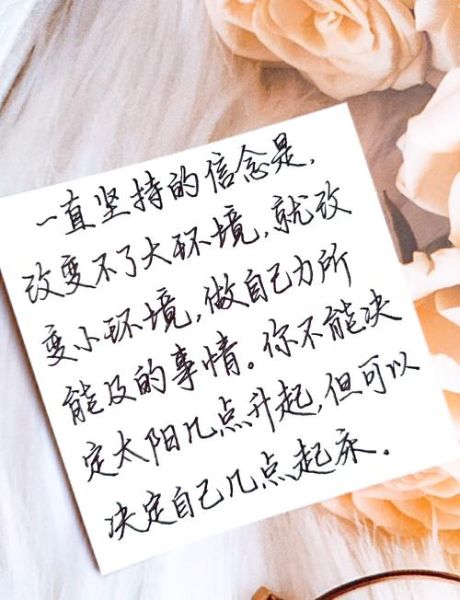 一直坚持的信念是，
改变不了大环境，就改
变小环境，做自己力所
能及的事情。你不能决
定太阳几点升起，但可以
决定自己几点起床。